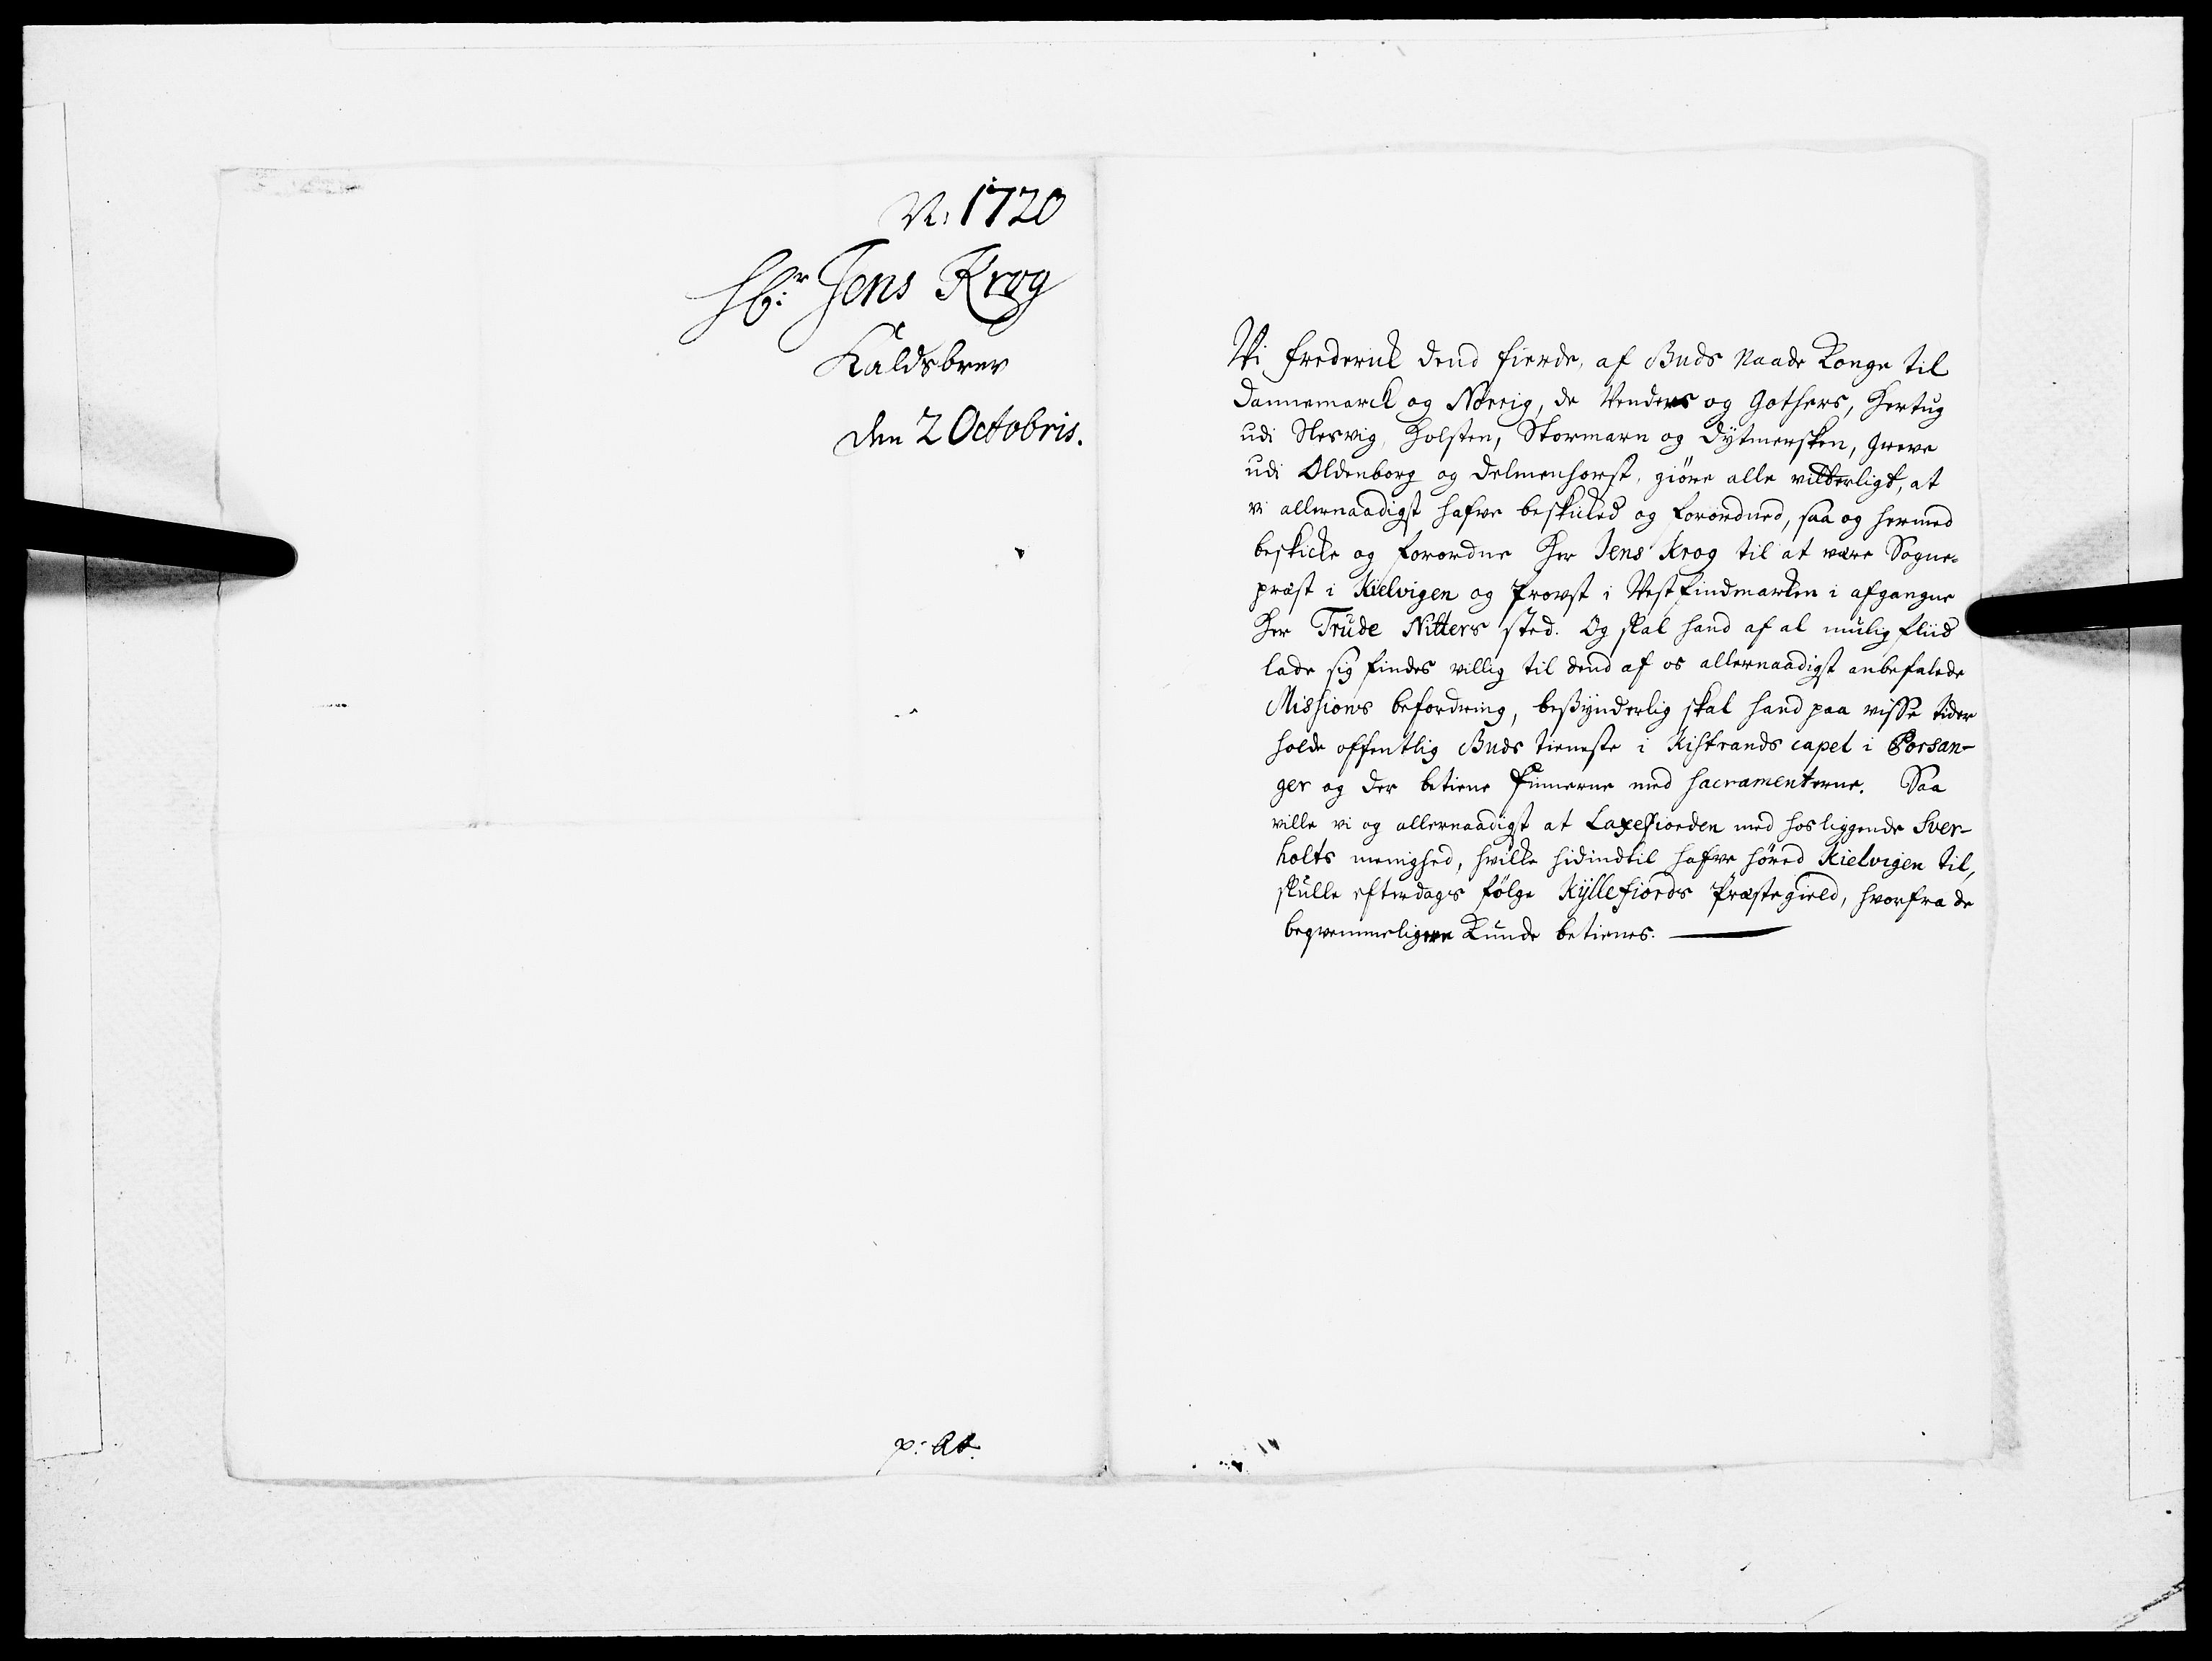 N: 1720
Hr: Jens Krog
Kaldsbrev
den 2 Octobris.
p: At.
Vi Friderich dend fierde, af Guds Naade Konge til
Dannemarck og Norrig, de Venders og Gothers, Hertug
udi Slesvig, Holsten, Stormarn og Dytmersken, Greve
udi Oldenborg og Delmenhorst, giøre alle vitterligt, at
vi allernaadigst hafve beskicked og forordned, saa og hermed
beskicke og forordne Her Jens Krog til at være Sogne-
præst i Kielvigen og Provst i Vestfindmarken i afgangne
Her Trude Nitters sted. Og skal hand af al mulig fliid
lade sig findes villig til dend af os allernaadigst anbefalede
Missions befordring, besynderlig skal hand paa visse tider
holde offentlig Guds tieneste i Kistrands capel i Porsan-
ger og der betiene Finnerne med Sacramenterne. Saa
ville vi og allernaadigst at Laxefiorden med hosliggende Sver-
holts menighed, hvilke hidindtil hafve høred Kielvigen til,
skulle efterdags følge Kyllefiords Præstegield, hvorfra de
beqvemmeligere kunde betienes.